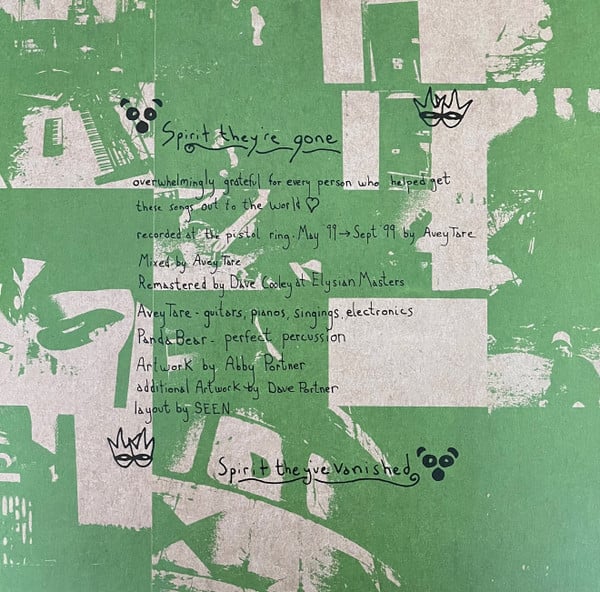 Spirit they're gone
overwhelmingly grateful for every person who helped get
these songs out to the World ♡
recorded at the pistol ring. May '99 → Sept '99 by Avey Tare
Mixed by Avey Tare
Remastered by Dave Cooley at Elysian Masters
Avey Tare - guitars, pianos, singings, electronics
Panda Bear - perfect percussion
Artwork by Abby Portner
additional Artwork by Dave Portner
layout by SEEN
Spirit theyve vanished